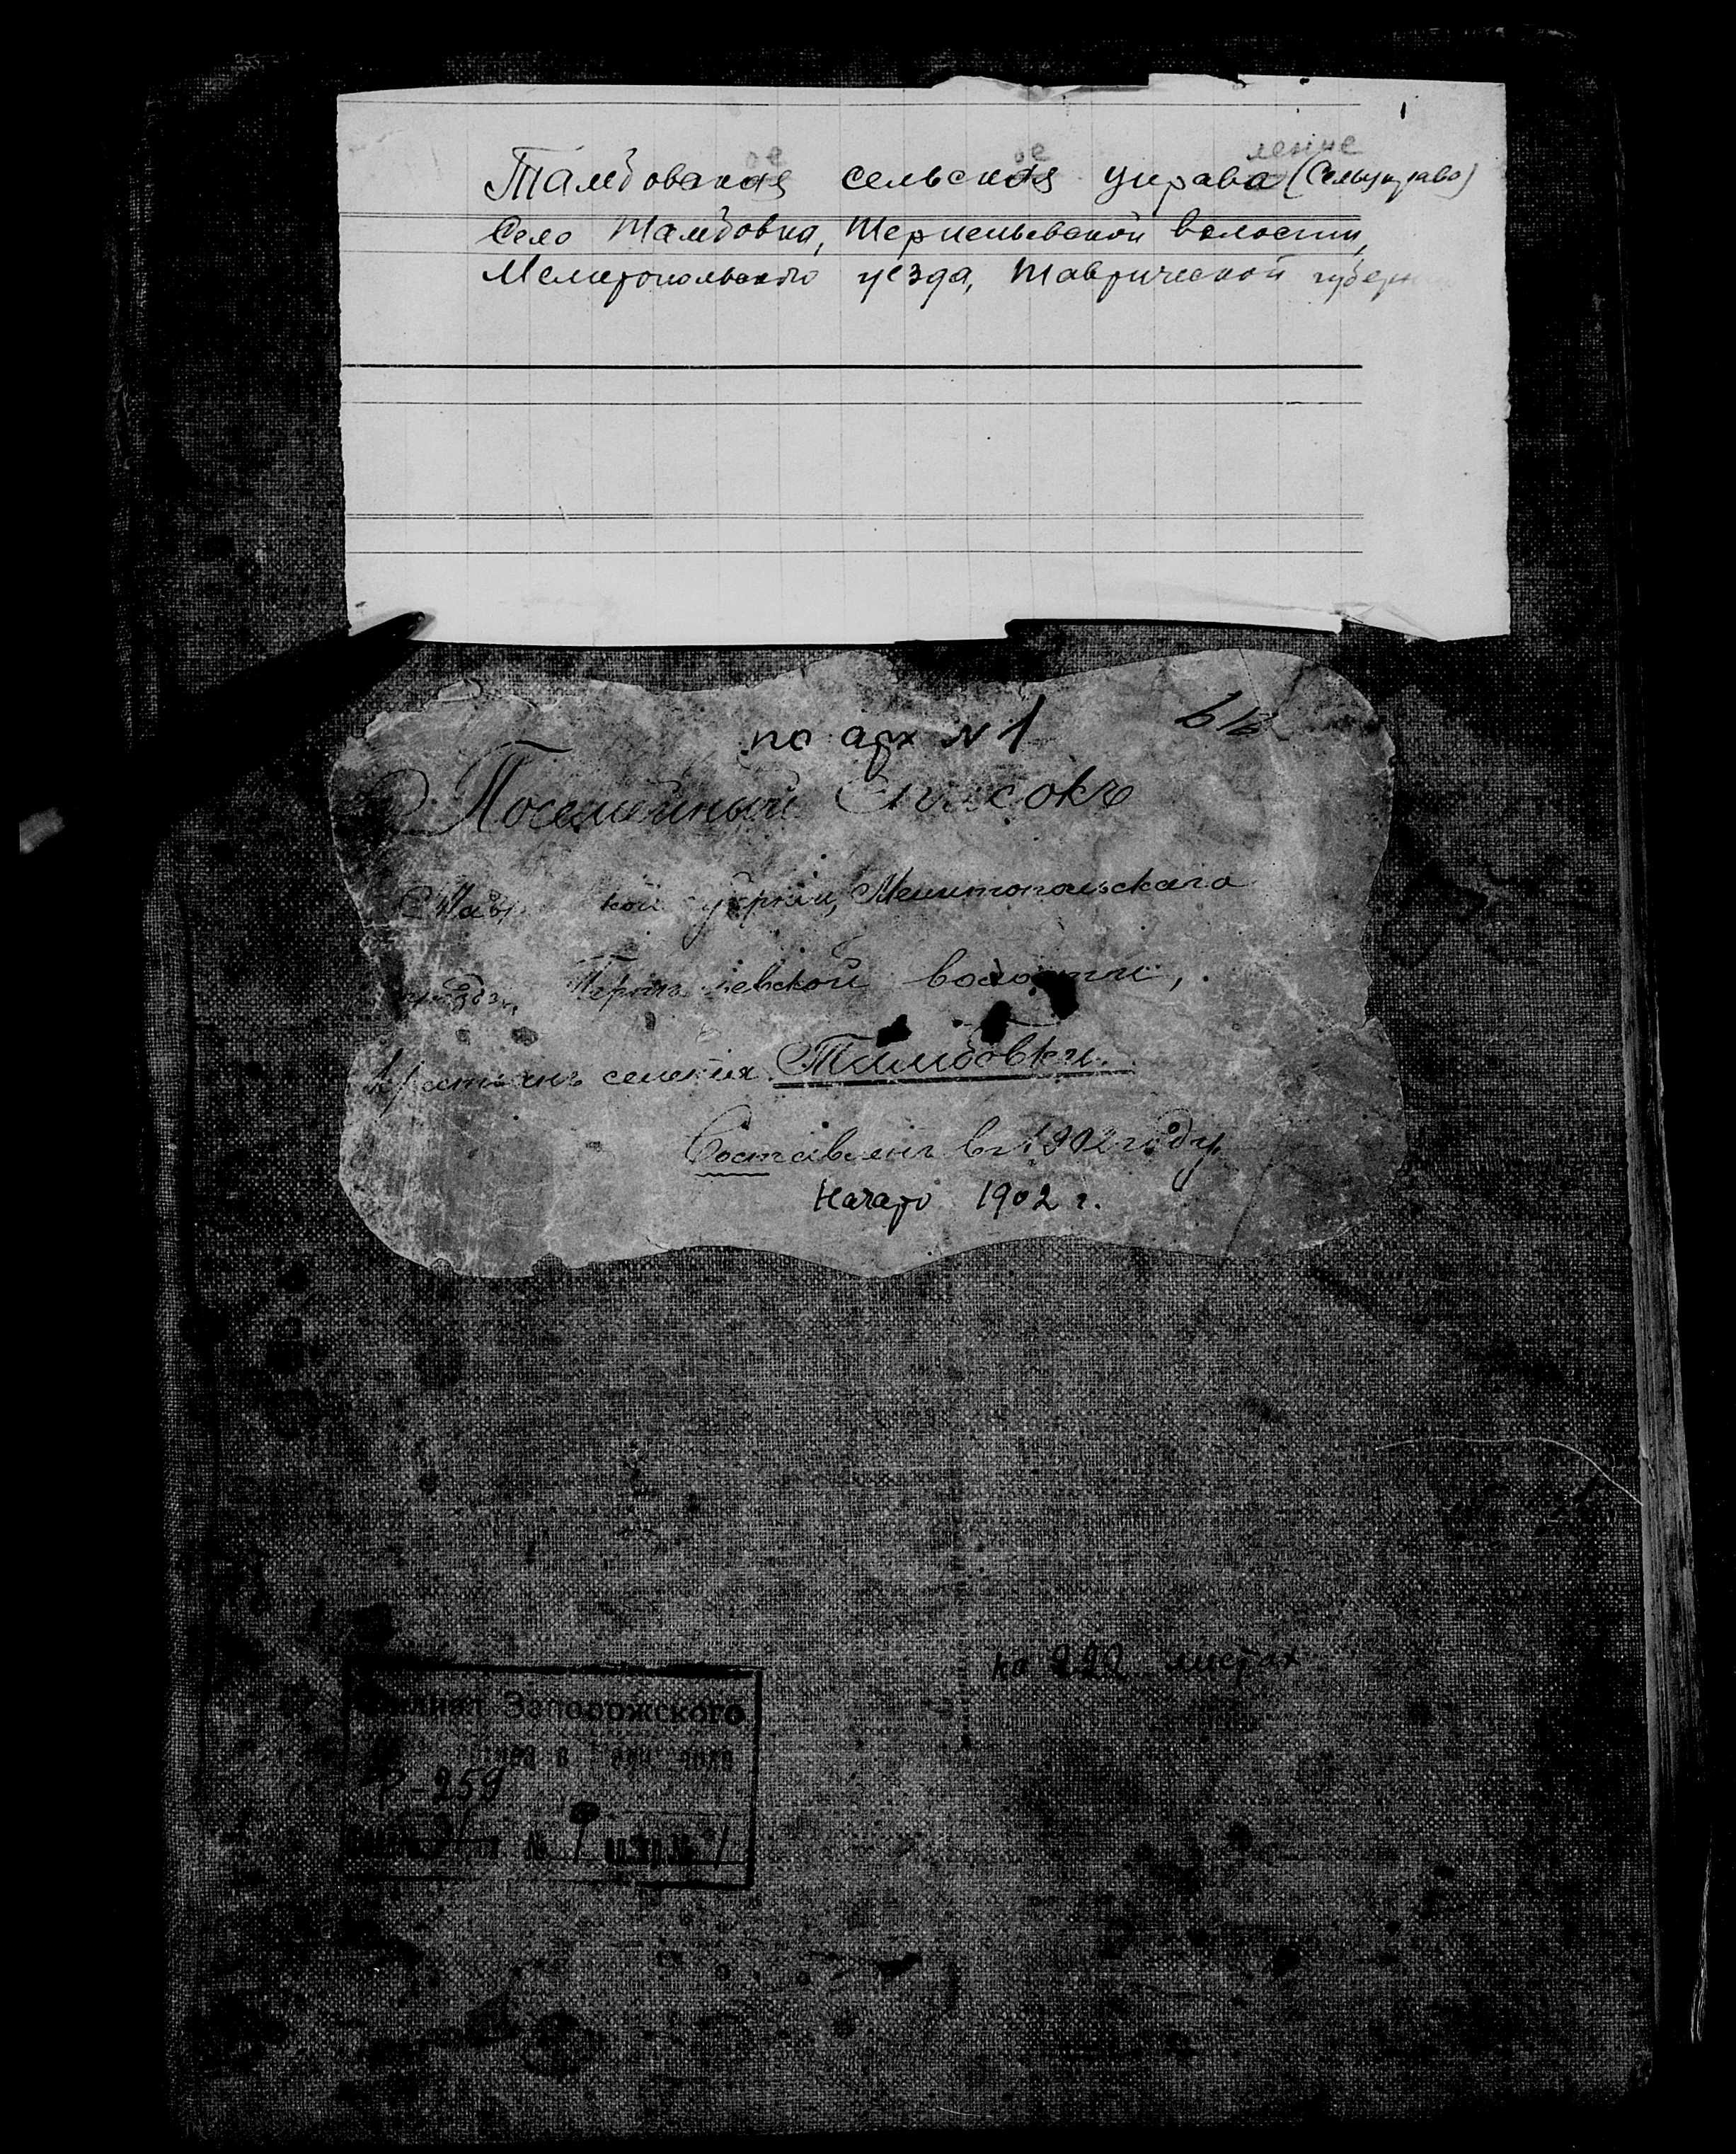 1
ое ое ление
Тамбовская сельская управа (Сельуправа)
Село Тамбовка, Терпеньевской волости,
Мелитопольского уезда, Таврической губерн
по арх № 1
Посемейный Списокъ
Тавр кой губернiи, Мелитопольскаго
уѣзда, Терпѣ ьевской волости,
Крестьянъ селенiя Тамбовки.
Составленъ въ 1902 году.
Начато 1902 г.
на 222 листах
Филиал Запорожского
Р-259
№ 1